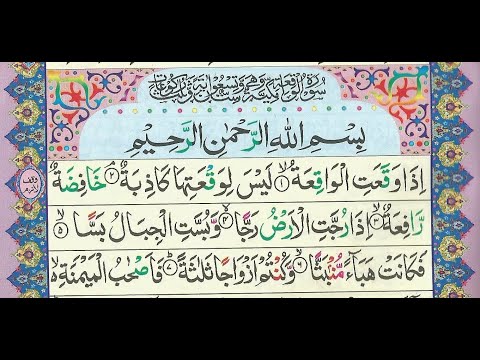 سُوْرَةُ الْوَاقِعَةِ مَكِّيَّةٌ وَّهِيَ سِتٌّ وَّتِسْعُوْنَ اٰيَةً وَّثَلٰثُ رُكُوْعَاتٍ
بِسْمِ اللّٰهِ الرَّحْمٰنِ الرَّحِيْمِ
اِذَا وَقَعَتِ الْوَاقِعَةُ ۙ‏﴿۱﴾ لَيْسَ لِوَقْعَتِهَا كَاذِبَةٌ ۘ‏﴿۲﴾ خَافِضَةٌ
رَّافِعَةٌ ۙ‏﴿۳﴾ اِذَا رُجَّتِ الْاَرْضُ رَجًّا ۙ‏﴿۴﴾ وَّبُسَّتِ الْجِبَالُ بَسًّا ۙ‏﴿۵﴾
فَكَانَتْ هَبَآءً مُّنْۢبَثًّا ۙ‏﴿۶﴾ وَّكُنْتُمْ اَزْوَاجًا ثَلٰثَةً ؕ‏﴿۷﴾ فَاَصْحٰبُ الْمَيْمَنَةِ ۙ
وقف لازم